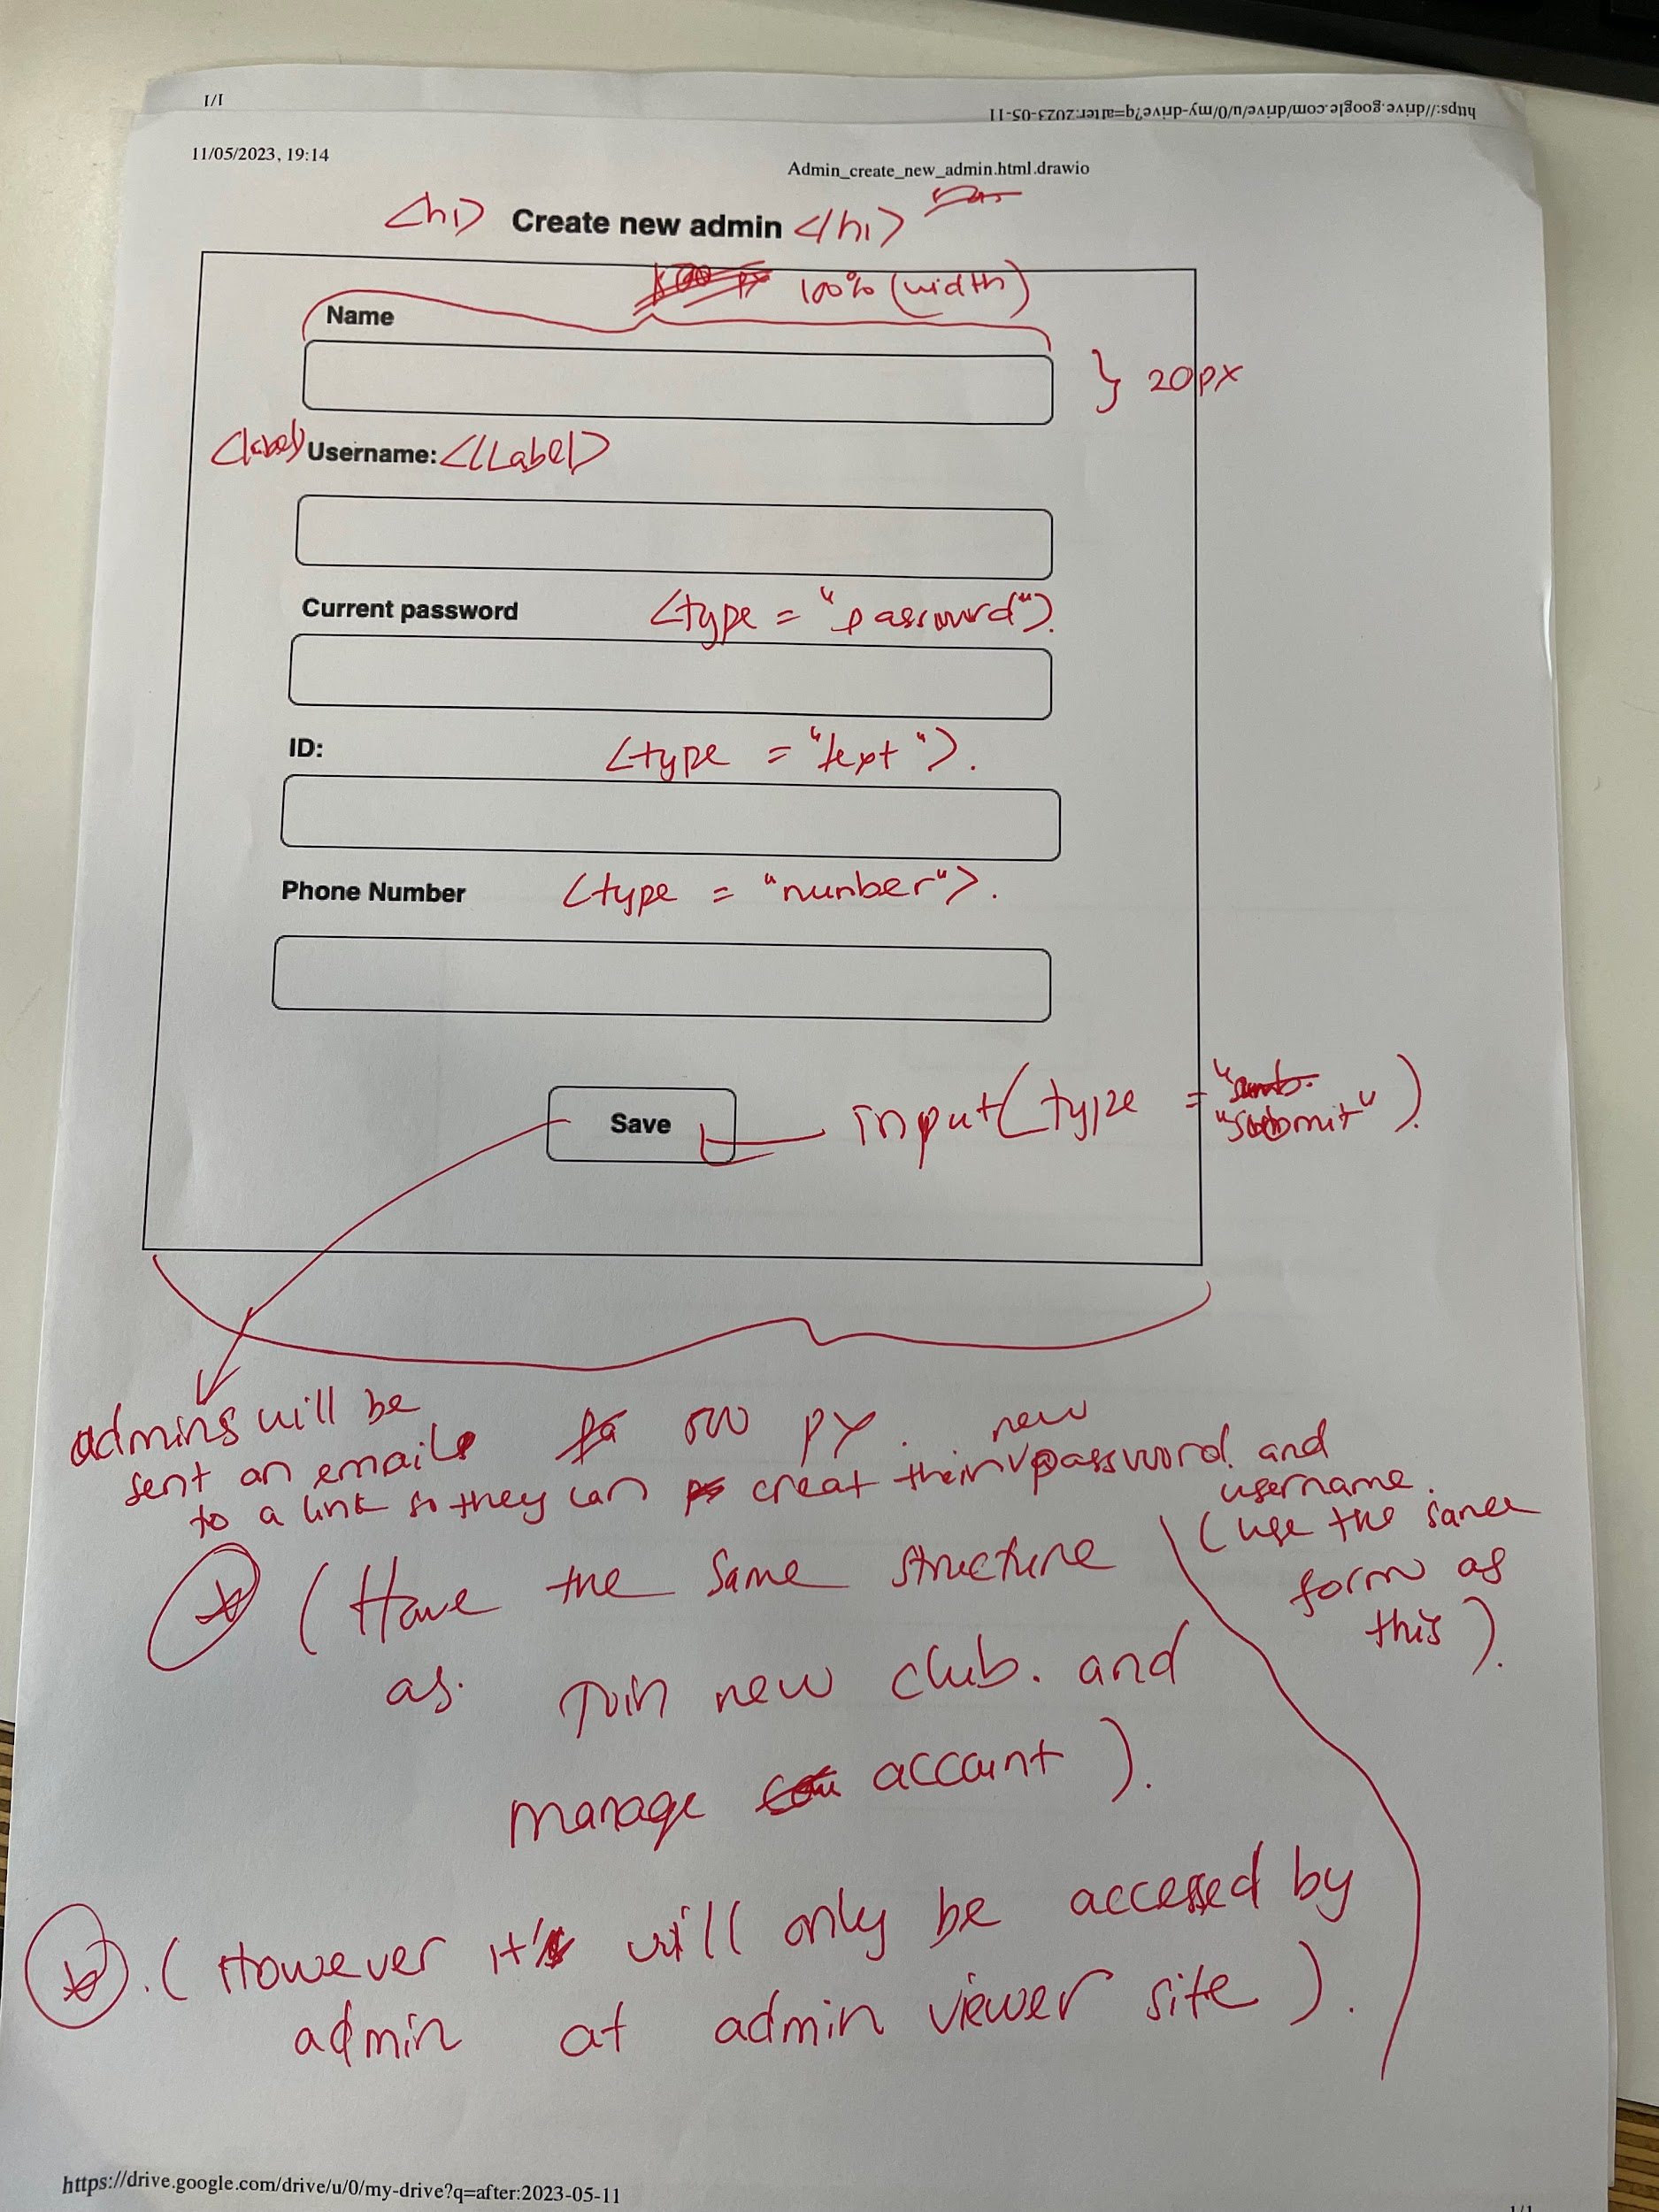 1/1
https://drive.google.com/drive/u/0/my-drive?q=after:2023-05-11
11/05/2023, 19:14
Admin_create_new_admin.html.drawio
<h1> Create new admin </h1>
100% (width)
Name
} 20px
<label> Username: </Label>
Current password <type = "password">.
ID: <type = "text">.
Phone Number <type = "number">.
Save
input(type = "submit").
admins will be
sent an email
to a link so they can creat their new password and
username.
500 px.
(use the same
form as
this).
(Have the same structure
as. Join new club. and
manage account).
.(However it will only be accessed by
admin at admin viewer site).
https://drive.google.com/drive/u/0/my-drive?q=after:2023-05-11
1/1